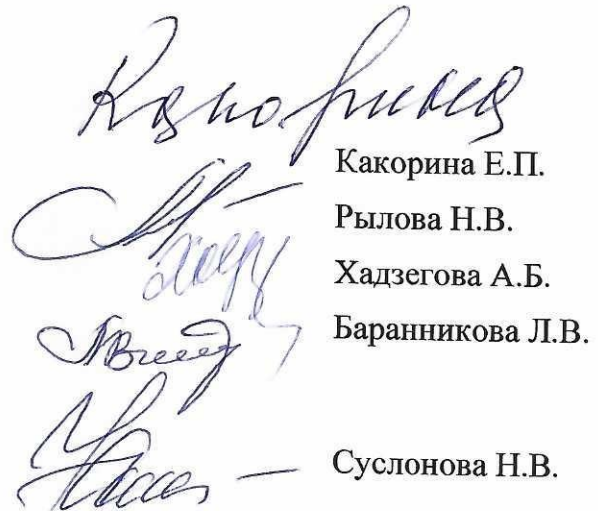 Какорина
Какорина Е.П.
Рылова Н.В.
Хадзегова А.Б.
Баранникова Л.В.
Суслонова Н.В.